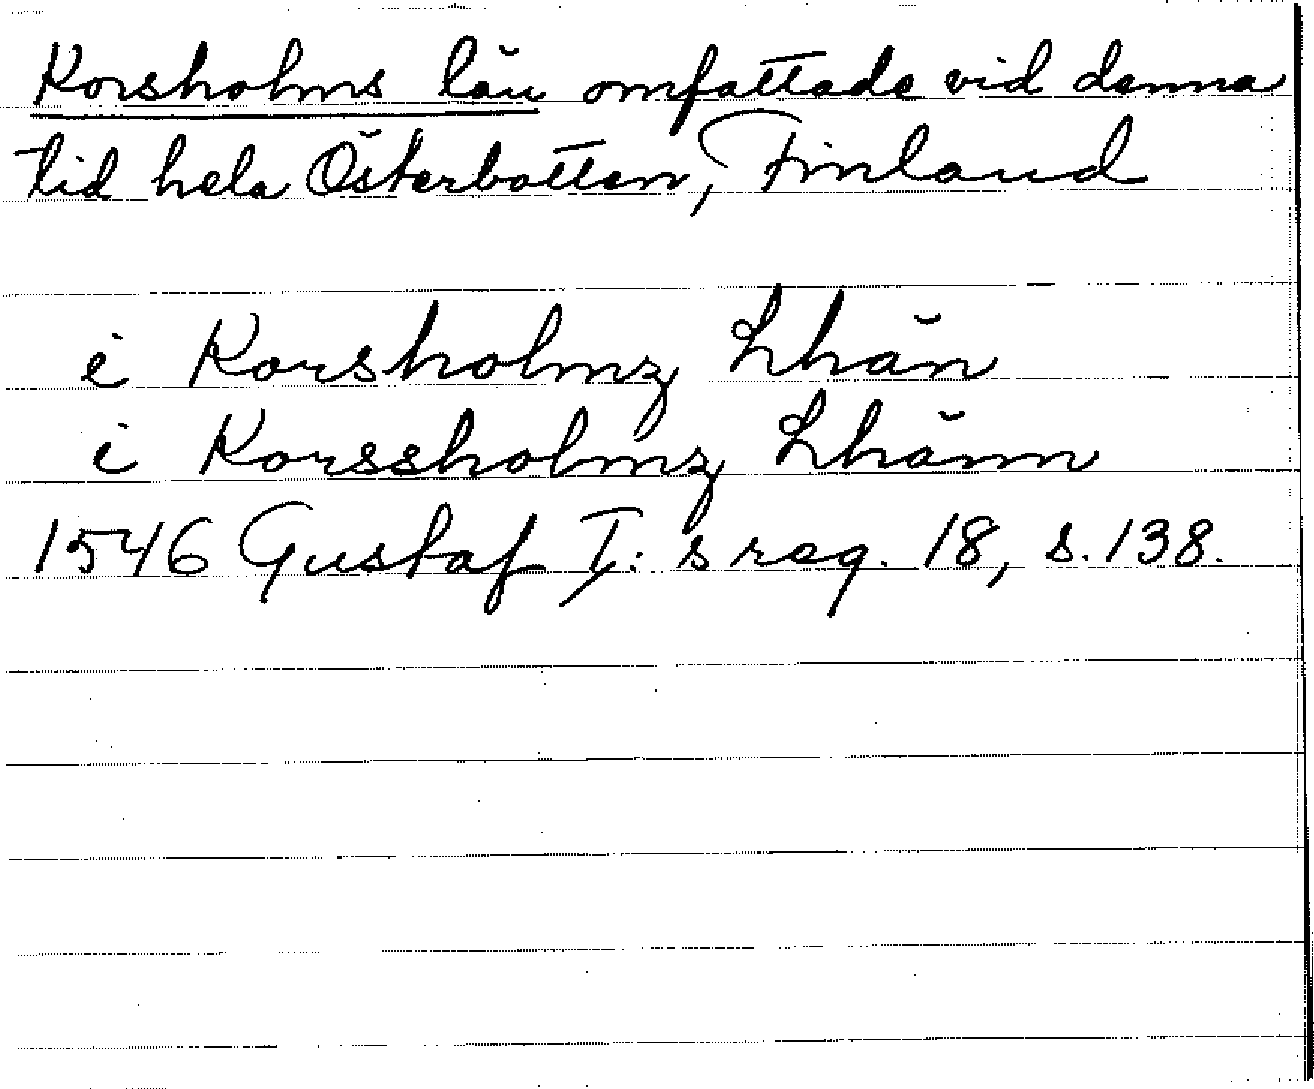 Korsholms län omfattade vid denna
tid hela Österbotten, Finland
i Korsholmz Lhän
i Korssholmz Lhänn
1546 Gustaf I:s reg. 18, s. 138.